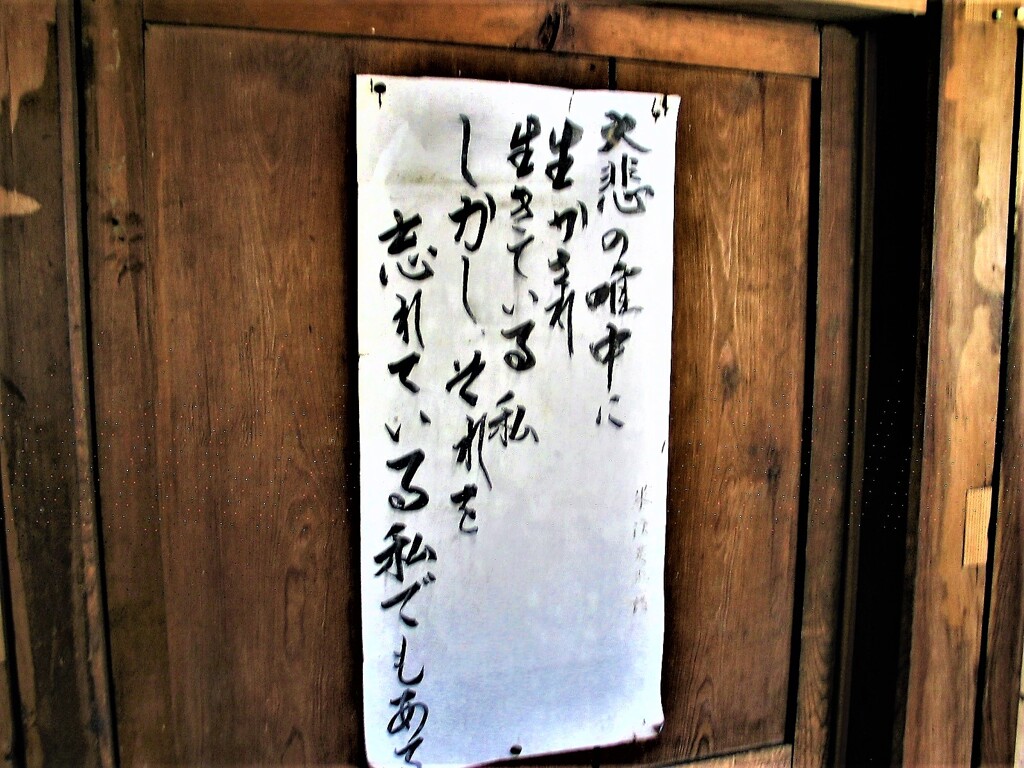 大悲の唯中に
生かされ
生きている私
しかし、それを
忘れている私でもあっ